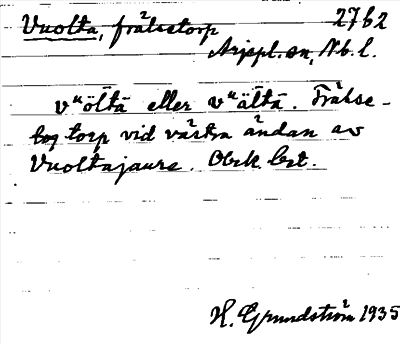 Vuolta, frälsetorp 2762
Arjepl. sn, Nb. l.
vᵘöltā eller vᵘältā. Frälse-
torp vid västra ändan av
Vuoltajaure. Obek. bet.
H. Grundström 1935